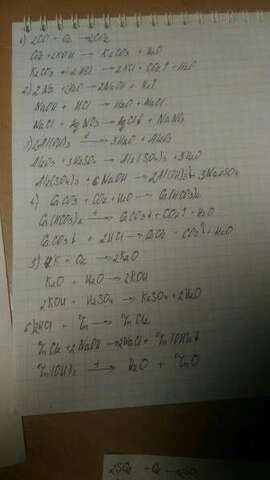 1) 2CO + O₂ → 2CO₂
CO₂ + 2KOH → K₂CO₃ + H₂O
K₂CO₃ + 2HCl → 2KCl + CO₂↑ + H₂O
2) 2Na + 2H₂O → 2NaOH + H₂↑
NaOH + HCl → H₂O + NaCl
NaCl + AgNO₃ → AgCl↓ + NaNO₃
3) 2Al(OH)₃ → 3H₂O + Al₂O₃
Al₂O₃ + 3H₂SO₄ → Al₂(SO₄)₃ + 3H₂O
Al₂(SO₄)₃ + 6NaOH → 2Al(OH)₃↓ + 3Na₂SO₄
4) CaCO₃ + CO₂ + H₂O → Ca(HCO₃)₂
Ca(HCO₃)₂ → CaCO₃↓ + CO₂↑ + H₂O
CaCO₃↓ + 2HCl →
5) K + O₂ → 2K₂O
K₂O + H₂O → 2KOH
2KOH + H₂SO₄ → K₂SO₄ + 2H₂O
6) 2HCl + Zn → ZnCl₂
ZnCl₂ + 2NaOH → 2NaCl + Zn(OH)₂↓
Zn(OH)₂ → H₂O + ZnO
2SO₂ + O₂